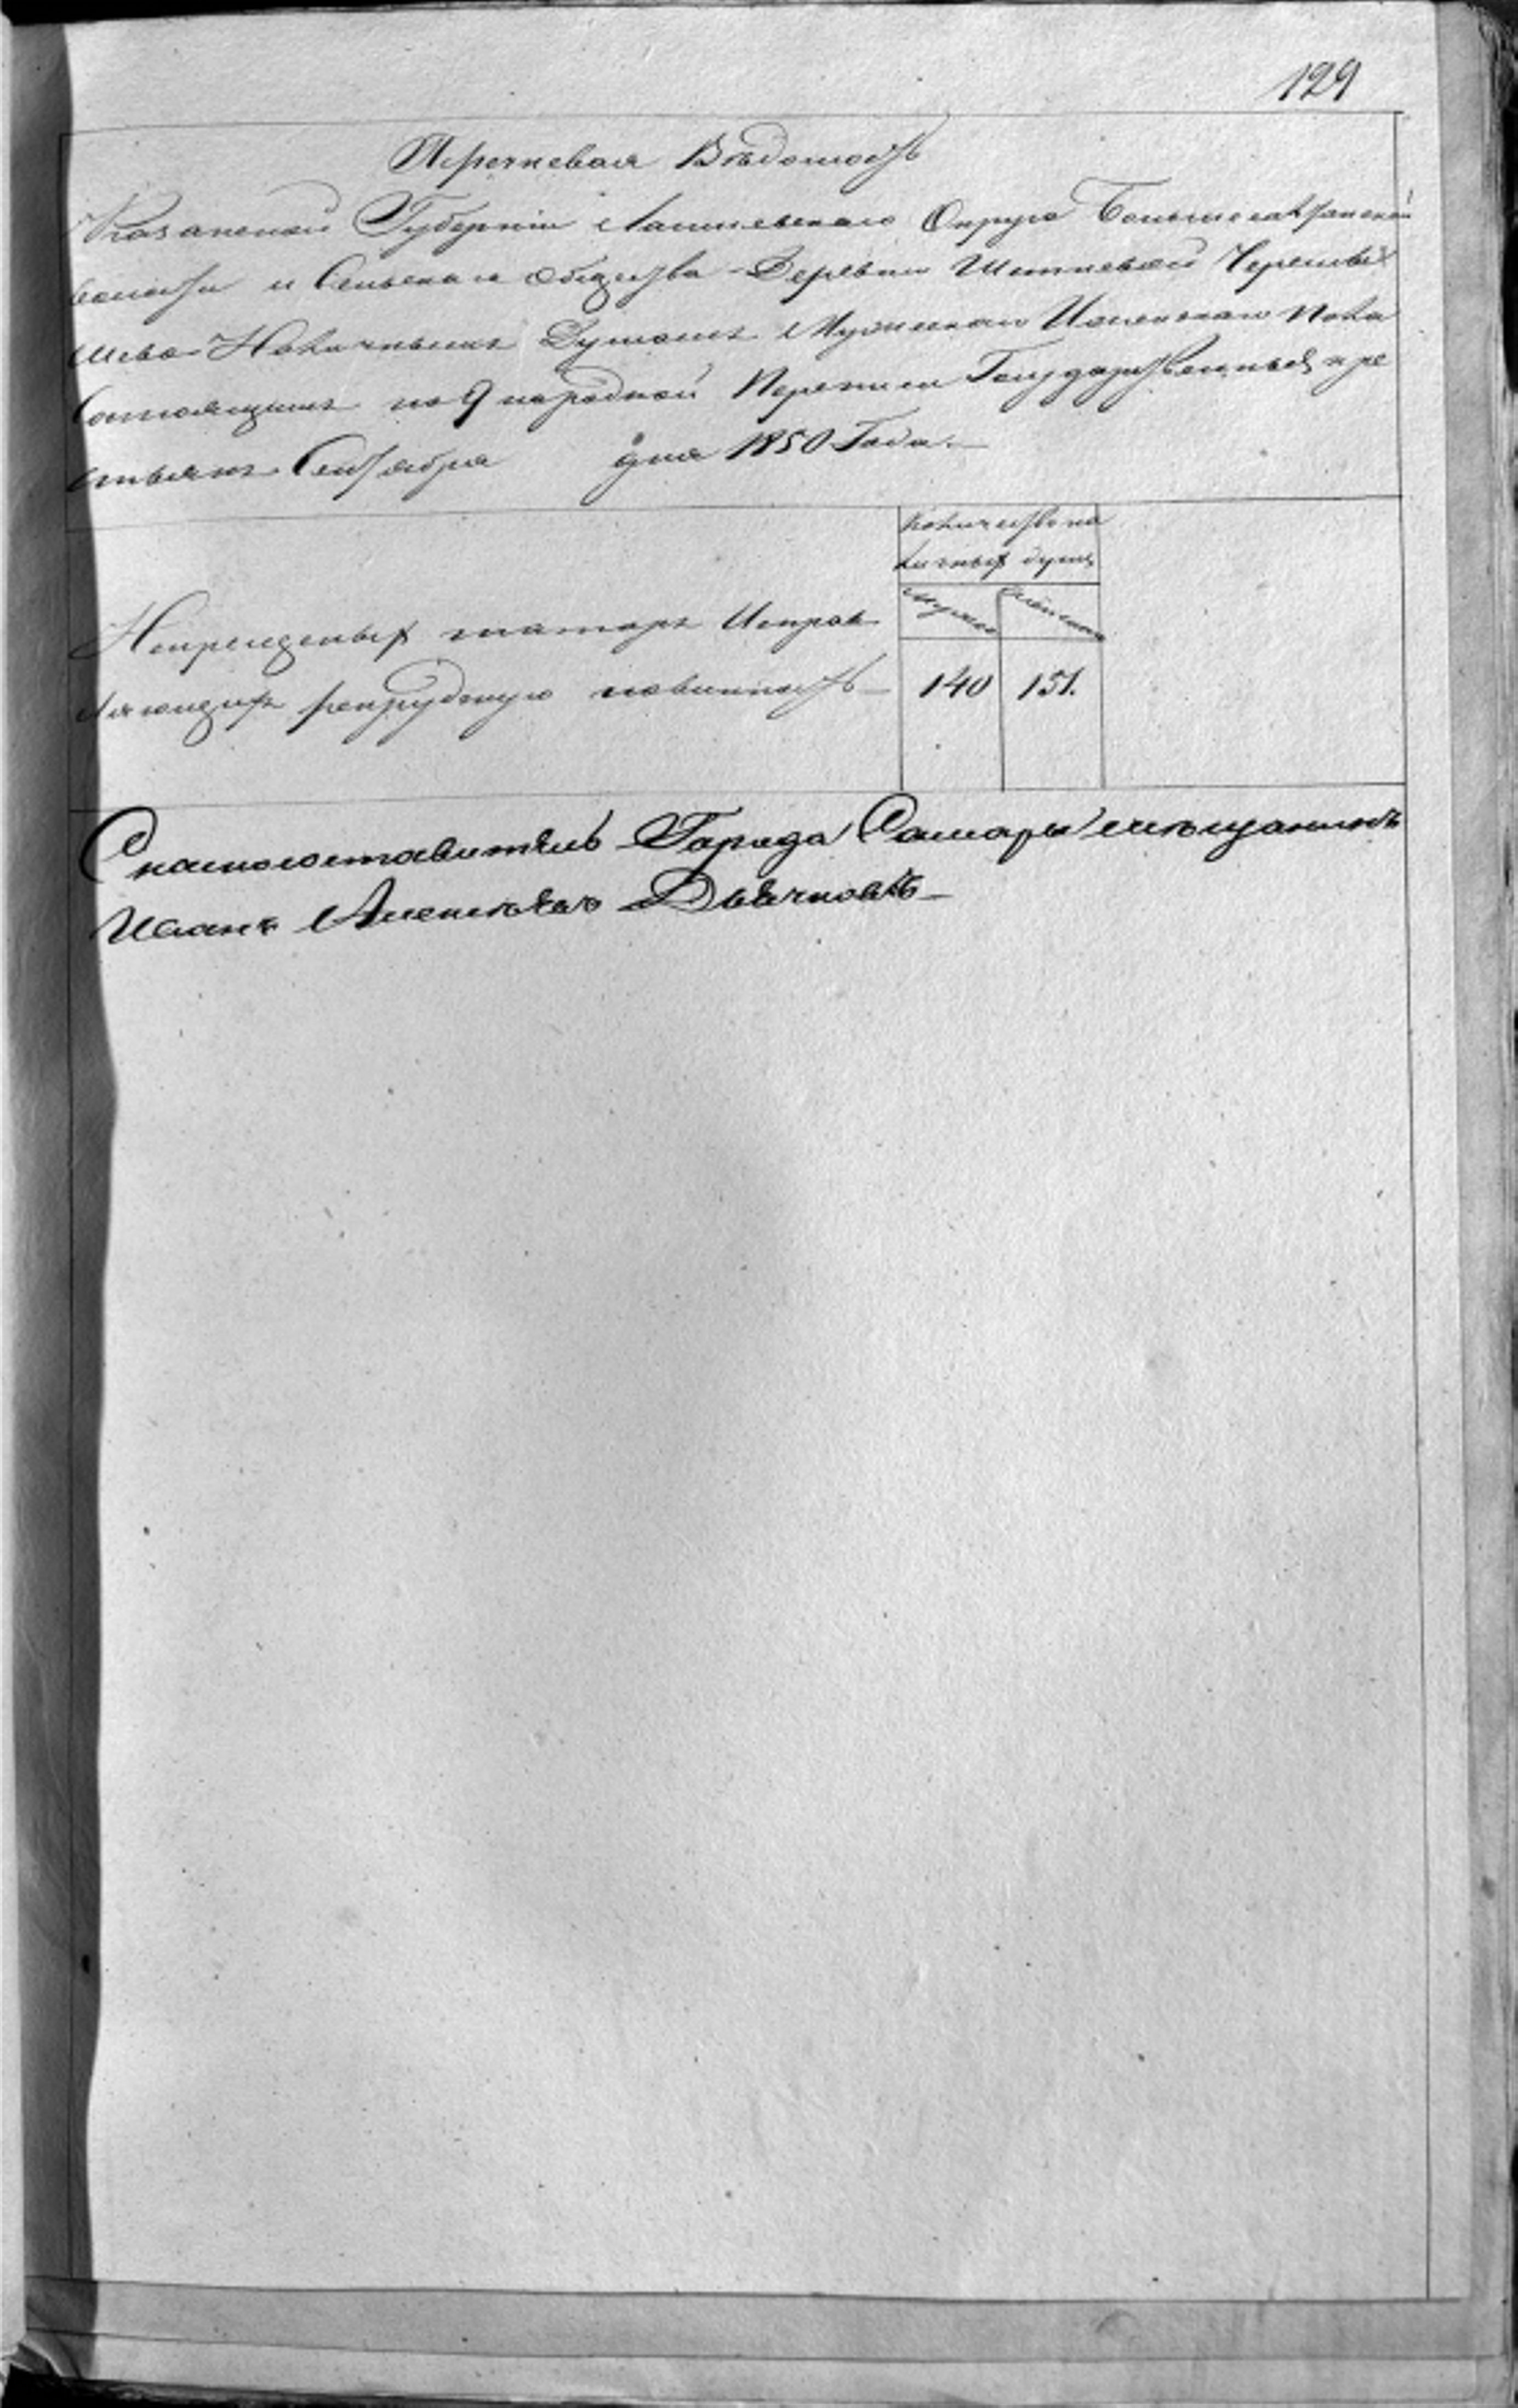 129
Перечневая Вѣдомость
Казанской Губерніи Лаишевскаго Округа
волости и Сельскаго общества Деревни
Наличнымъ Душамъ Мужескаго и женскаго пола
Состоящимъ по 9 народной Переписи Государственныхъ кре
стьянъ Сентября дня 1850 Года.
Количество на
личныхъ душъ
Мужеска Женска
Некрещеныхъ татаръ Исправ
ляющихъ рекрудскую повинность 140 151.
Скаскосоставитель Города Самары мещанинъ
Иванъ Алексѣевъ